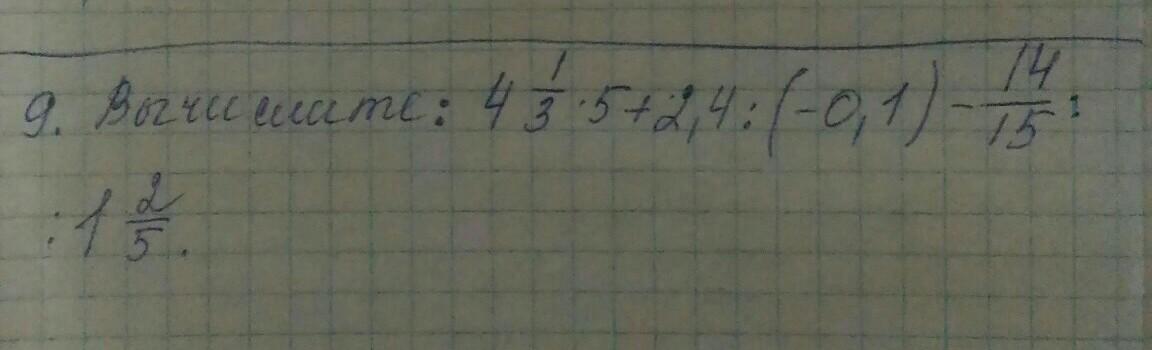 9. Вычислите: 4 1/3 · 5 + 2,4 : (-0,1) - 14/15 :
: 1 2/5.